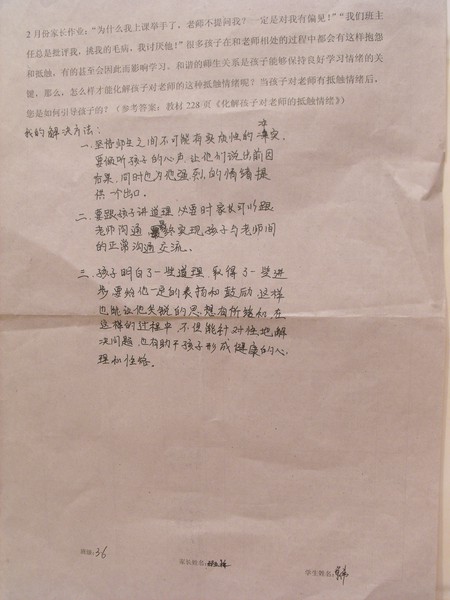 2 月份家长作业：“为什么我上课举手了，老师不提问我？一定是对我有偏见！”“我们班主
任总是批评我，挑我的毛病，我讨厌他！”很多孩子在和老师相处的过程中都会有这样抱怨
和抵触，有的甚至会因此而影响学习。和谐的师生关系是孩子能够保持良好学习情绪的关
键，那么，怎么样才能化解孩子对老师的这种抵触情绪呢？当孩子对老师有抵触情绪后，
您是如何引导孩子的？（参考答案：教材 228 页《化解孩子对老师的抵触情绪》）
我的解决方法：
一、坚信师生之间不可能有实质性的冲突，
要倾听孩子的心声，让他们说出前因
后果，同时也为他强烈的情绪提
供一个出口。
二、要跟孩子讲道理，必要时家长可以跟
老师沟通，最终实现孩子与老师间
的正常沟通交流。
三、孩子明白了一些道理，取得了一些进
步要给他一定的表扬和鼓励，这样
也能让他尖锐的思想有所缓和，在
这样的过程中，不但能针对性地解
决问题，也有助于孩子形成健康的心
理和性格。
班级：36
家长姓名：
学生姓名：